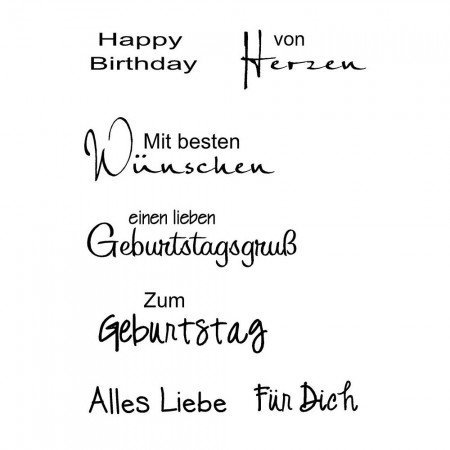 Happy
Birthday
von
Herzen
Mit besten
Wünschen
einen lieben
Geburtstagsgruß
Zum
Geburtstag
Alles Liebe
Für Dich